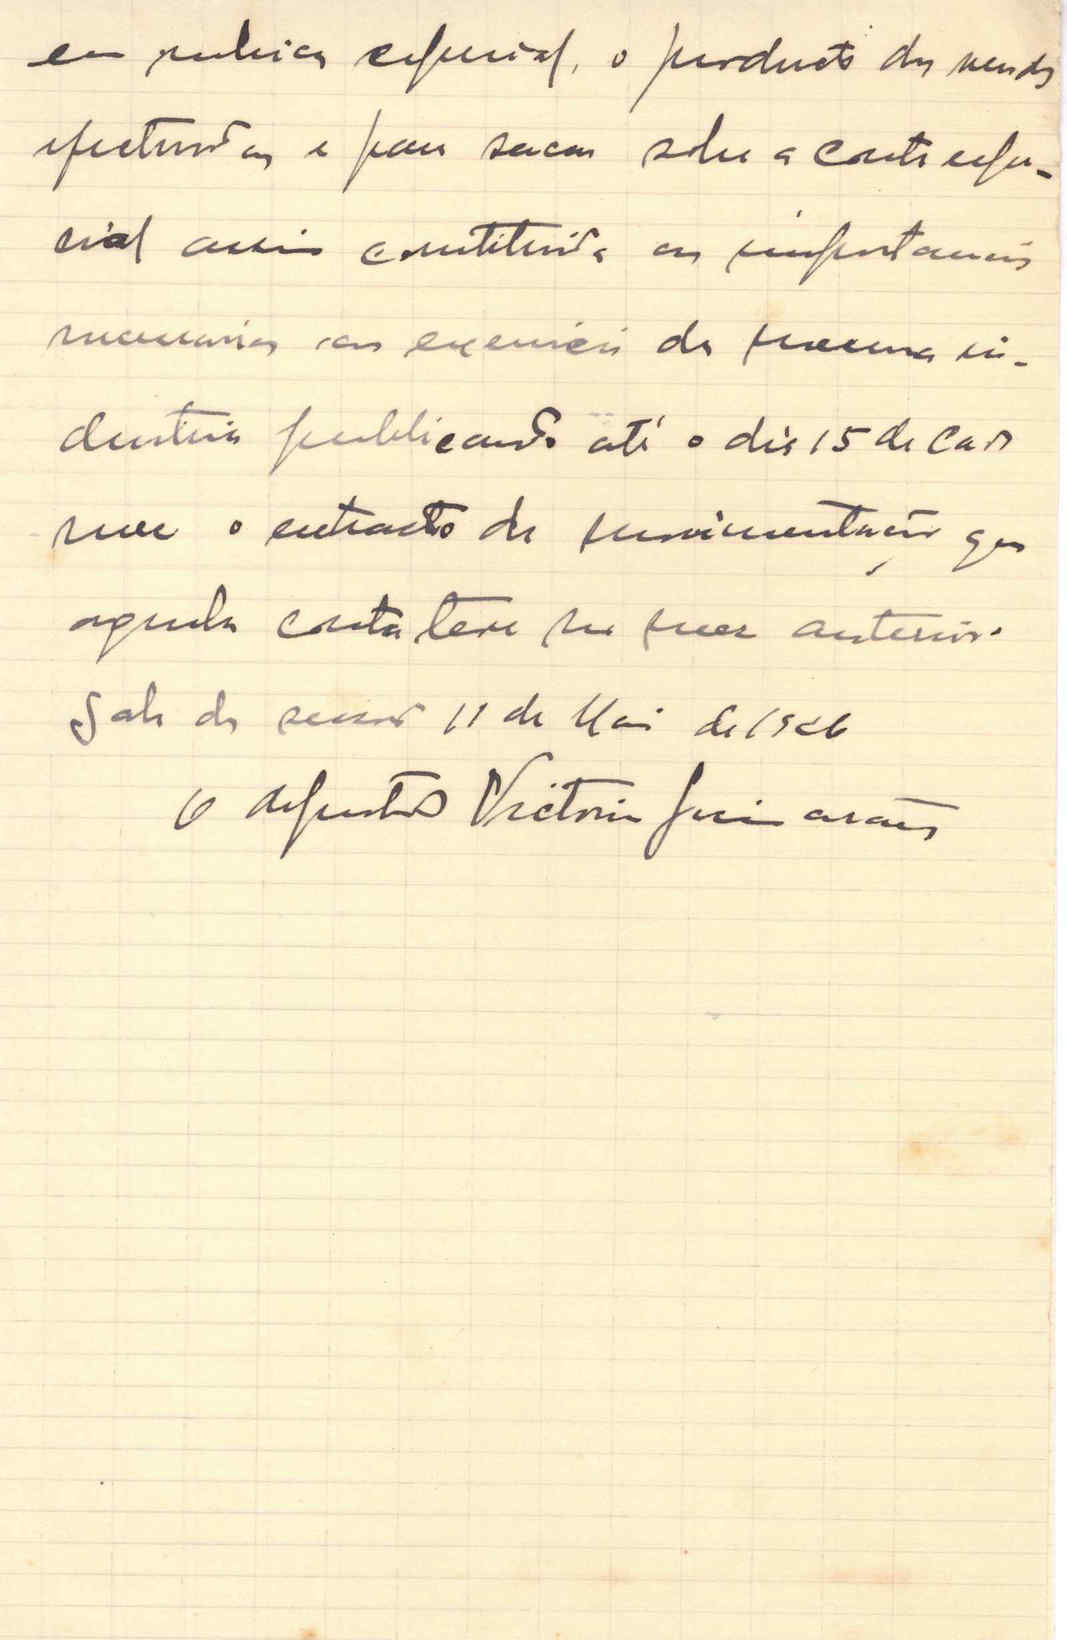 em rubrica especial, o producto das vendas
efectuadas e para sacar sobre a conta espe-
cial assim constituida as importancias
necessarias ao exercicio da mesma in-
dustria publicando até o dia 15 de cada
mez o extracto da movimentação que
aquela conta teve no mez anterior.
Sala das sessões 11 de Maio de 1926
O deputado Victorino Guimarães